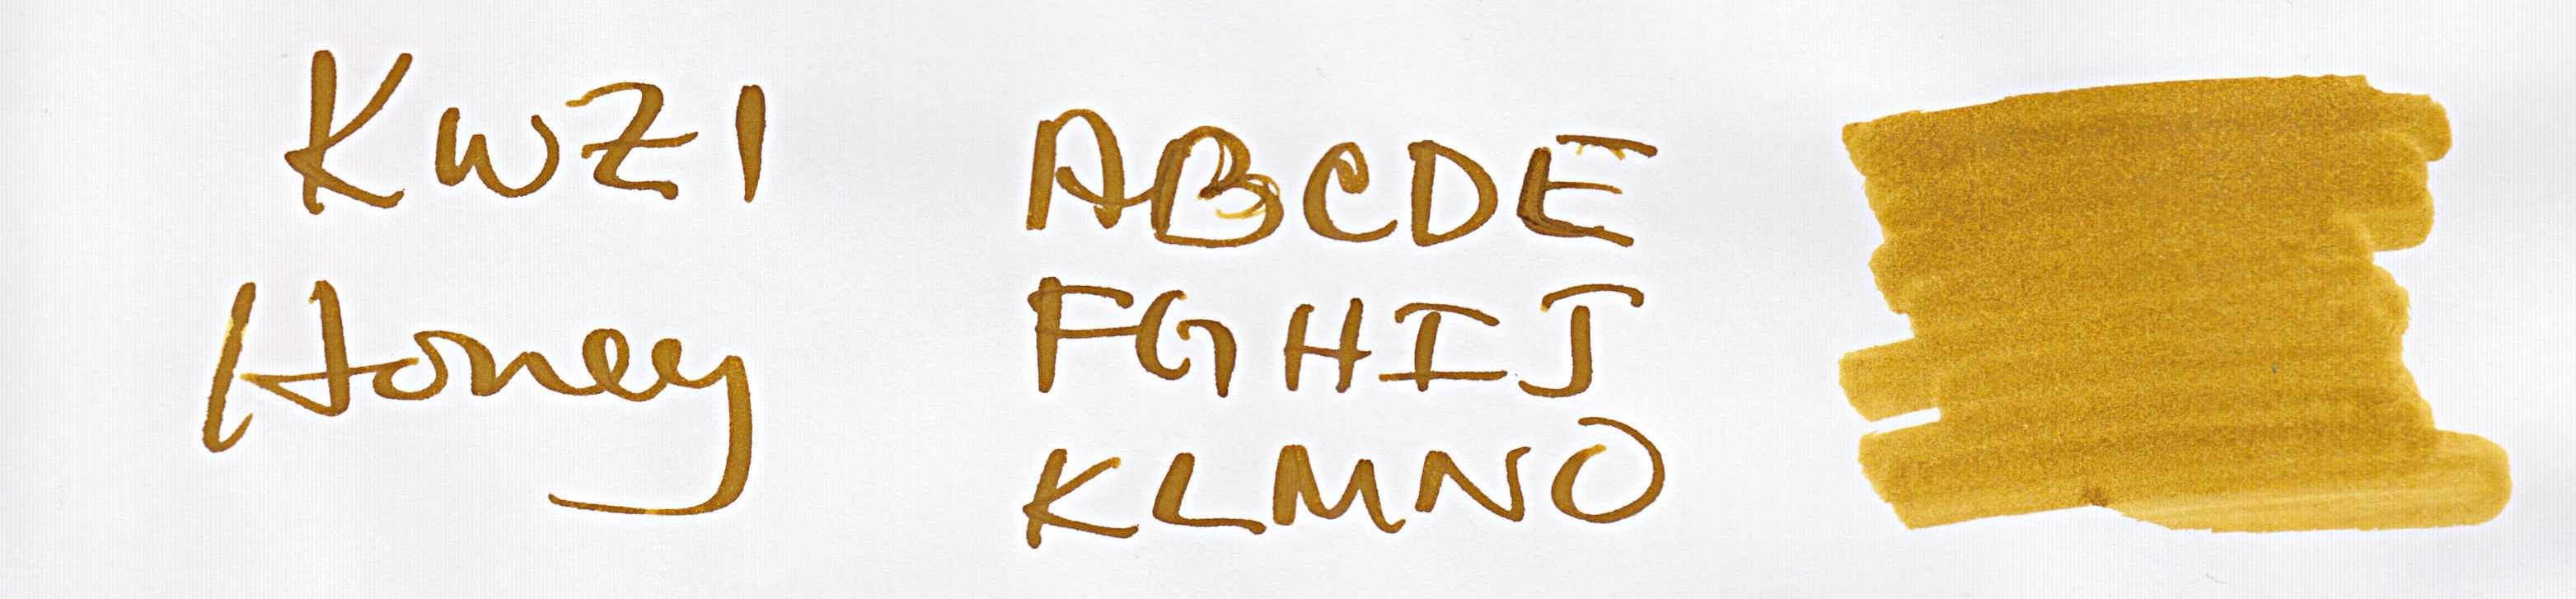 KWZI
Honey
ABCDE
FGHIJ
KLMNO